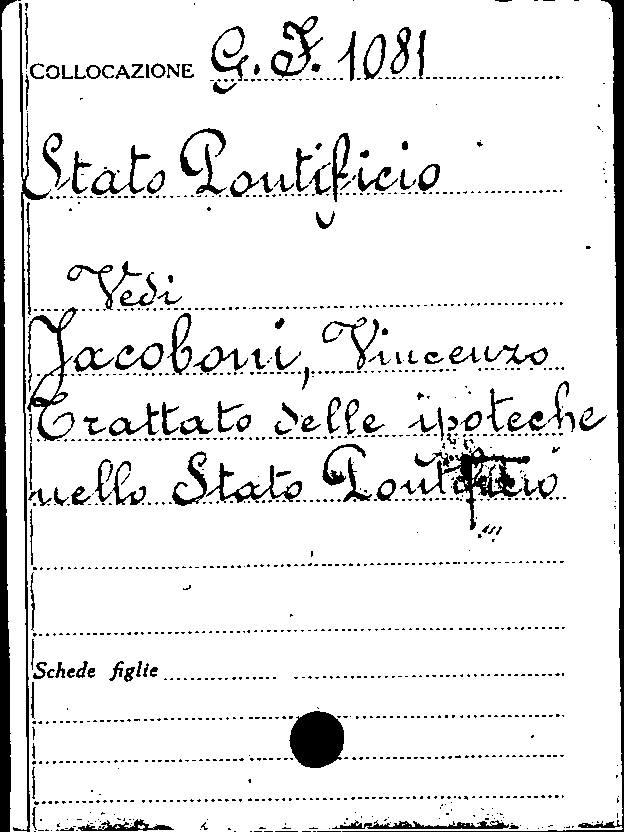 COLLOCAZIONE G. F. 1081
Stato Pontificio
Vedi
Jacoboni, Vincenzo
Trattato delle ipoteche
nello Stato Pontificio
Schede figlie